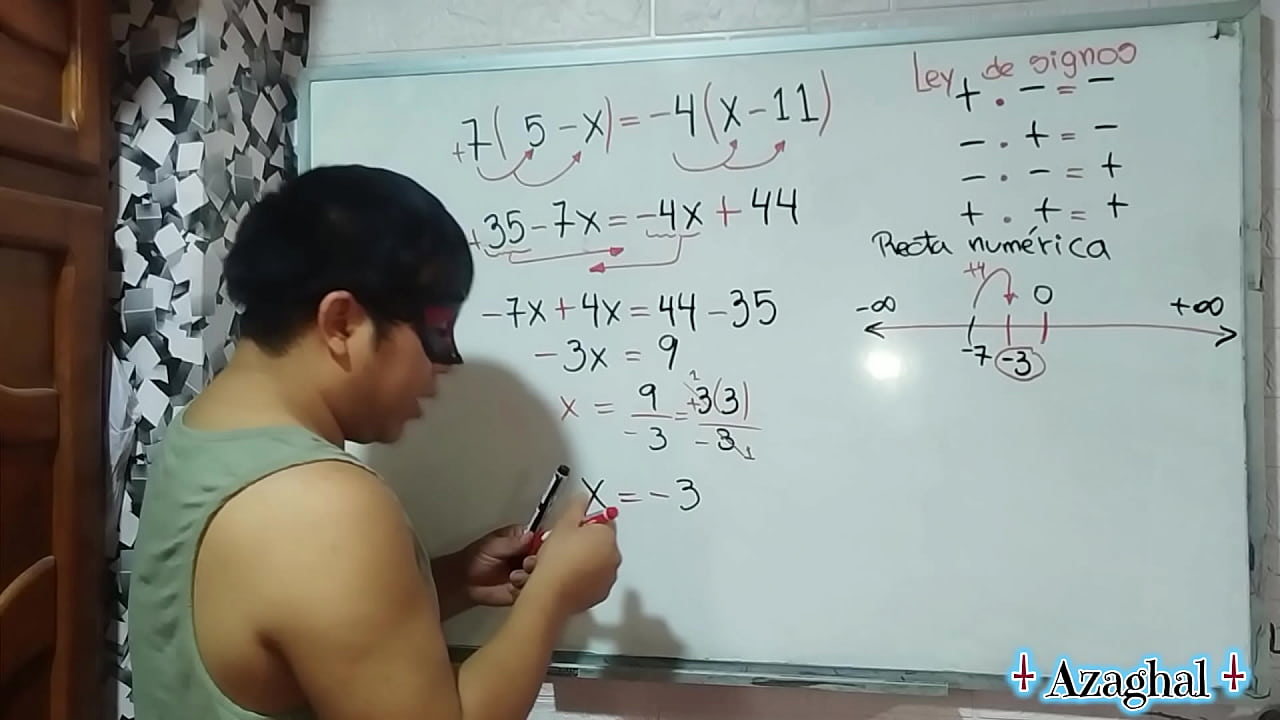 +7(5-x)=-4(x-11)
+35-7x=-4x+44
-7x+4x=44-35
-3x=9
x=9/-3=+3(3)/-3
1
1
x=-3
Ley de signos
+.-=-
-.+=-
-.-=+
+.+=+
Recta numérica
+4
-∞ 0 +∞
-7 -3
Azaghal